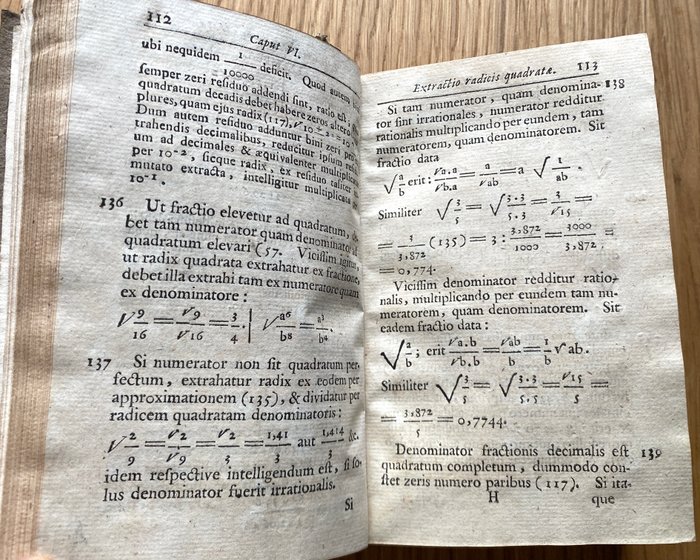 112
Caput VI.
ubi nequidem 1/10000 deficit. Quod autem
semper zeri residuo addendi sint, ratio est;
quadratum decadis debet habere zeros altero
plures, quam ejus radix (117),
Dum autem residuo adduntur bini zeri pro
trahendis decimalibus, reducitur ipsum resi
um ad decimales & æquivalenter multiplica
per 10⁻², sicque radix, ex residuo taliter
mutato extracta, intelligitur multiplicata per
10⁻¹.
136 Ut fractio elevetur ad quadratum,
bet tam numerator quam denominator ad
quadratum elevari (57. Vicissim igitur,
ut radix quadrata extrahatur ex fractione,
debet illa extrahi tam ex numeratore quam
ex denominatore:
√9/16 = √9/√16 = 3/4. | √a⁶/b⁸ = a³/b⁴.
137 Si numerator non sit quadratum per-
fectum, extrahatur radix ex eodem per
approximationem (135), & dividatur per
radicem quadratam denominatoris:
√2/9 = √2/√9 = √2/3 = 1,41/3 aut 1,414/3 &c.
idem respective intelligendum est, si so-
lus denominator fuerit irrationalis.
Si
Extractio radicis quadratæ. 113
Si tam numerator, quam denomina- 138
tor sint irrationales, numerator redditur
rationalis multiplicando per eundem, tam
numeratorem, quam denominatorem. Sit
fractio data
√a/b erit: √a.a/√b.a = a/√ab = a √1/ab.
Similiter √3/5 = √3.3/5.3 = 3/√15 =
= 3/ (135) = 3 : 3,872/1000 = 3000/3,872 =
= 0,774.
Vicissim denominator redditur ratio-
nalis, multiplicando per eundem tam nu-
meratorem, quam denominatorem. Sit
eadem fractio data:
√a/b; erit √a.b/√b.b = √ab/b = 1/b √ab.
Similiter √3/5 = √3.5/5.5 = √15/5 =
= 3,872/5 = 0,7744.
Denominator fractionis decimalis est 139
quadratum completum, dummodo con-
stet zeris numero paribus (117). Si ita-
H que